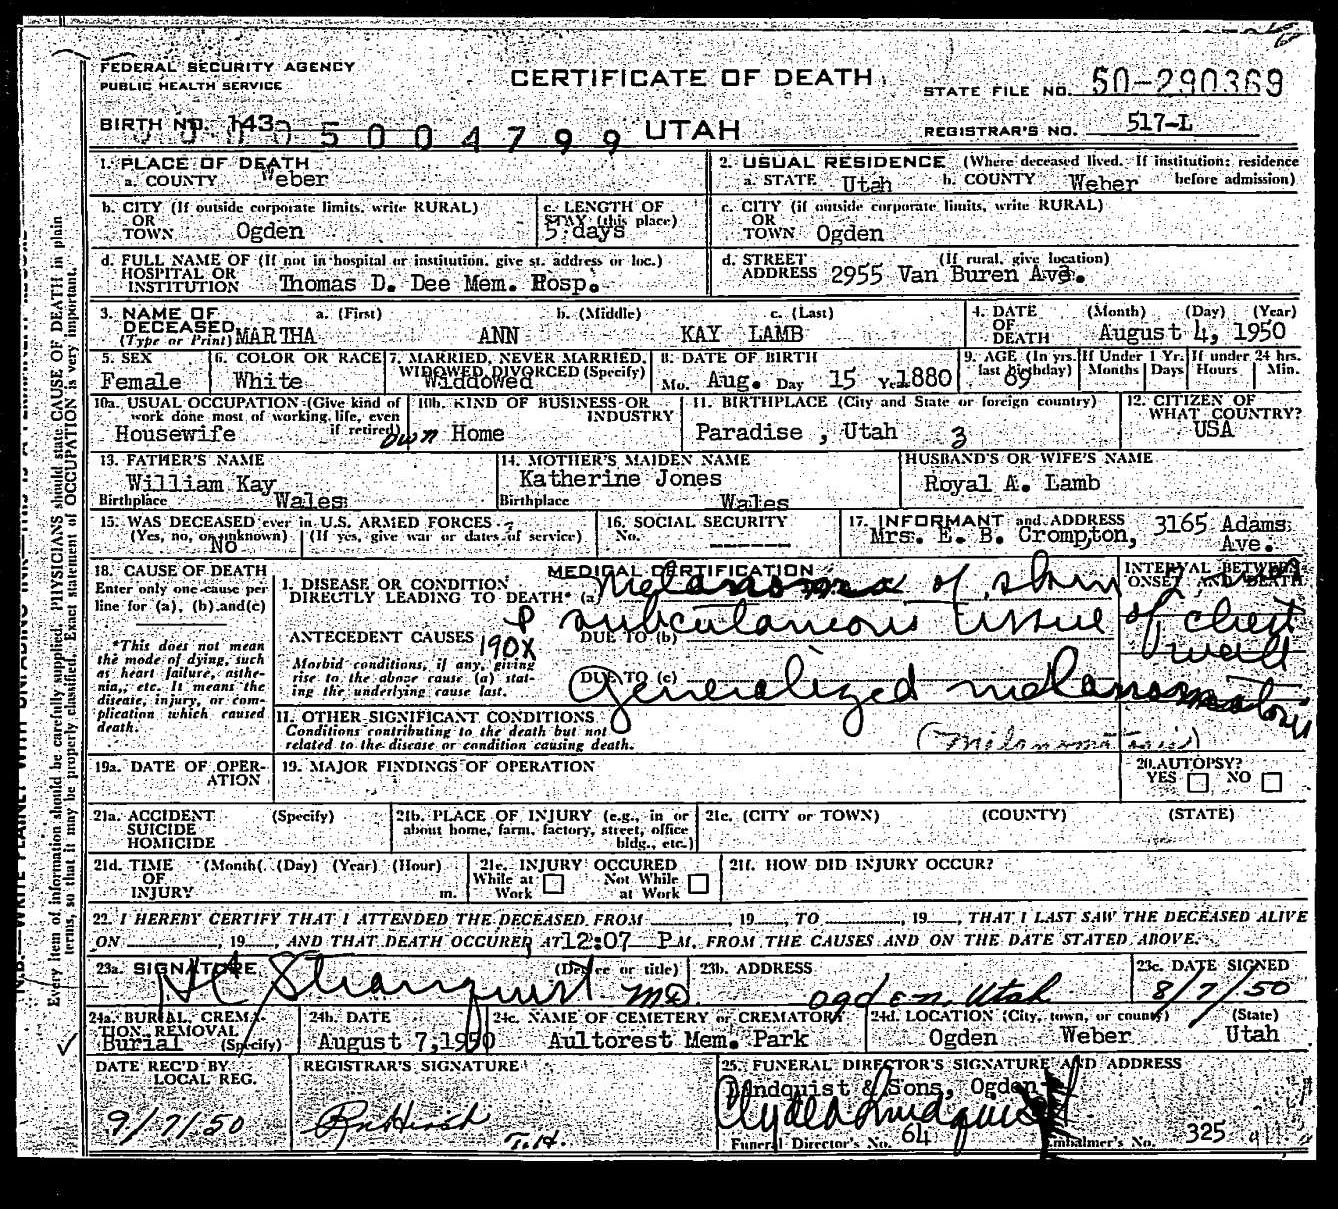 FEDERAL SECURITY AGENCY
PUBLIC HEALTH SERVICE
CERTIFICATE OF DEATH
STATE FILE NO. 50-290369
BIRTH NO. 143
0 5 0 0 4 7 9 9
UTAH
REGISTRAR'S NO. 517-L
1. PLACE OF DEATH
a. COUNTY Weber
2. USUAL RESIDENCE (Where deceased lived. If institution: residence before admission)
a. STATE Utah b. COUNTY Weber
b. CITY (If outside corporate limits, write RURAL) OR TOWN Ogden
c. LENGTH OF STAY (this place) 5 days
c. CITY (if outside corporate limits, write RURAL) OR TOWN Ogden
d. FULL NAME OF (If not in hospital or institution, give st. address or loc.)
HOSPITAL OR INSTITUTION Thomas D. Dee Mem. Hosp.
d. STREET ADDRESS (If rural, give location) 2955 Van Buren Ave.
3. NAME OF DECEASED (Type or Print) a. (First) b. (Middle) c. (Last)
MARTHA ANN KAY LAMB
4. DATE OF DEATH (Month) (Day) (Year)
August 4, 1950
5. SEX Female
6. COLOR OR RACE White
7. MARRIED, NEVER MARRIED, WIDOWED DIVORCED (Specify) Widdowed
8. DATE OF BIRTH Mo. Aug. Day 15 Year 1880
9. AGE (In yrs. last birthday) 69
If Under 1 Yr. Months Days
If under 24 hrs. Hours Min.
10a. USUAL OCCUPATION (Give kind of work done most of working life, even if retired) Housewife
10b. KIND OF BUSINESS OR INDUSTRY own Home
11. BIRTHPLACE (City and State or foreign country) Paradise , Utah 3
12. CITIZEN OF WHAT COUNTRY? USA
13. FATHER'S NAME William Kay
Birthplace Wales
14. MOTHER'S MAIDEN NAME Katherine Jones
Birthplace Wales
HUSBAND'S OR WIFE'S NAME
Royal A. Lamb
15. WAS DECEASED ever in U.S. ARMED FORCES?
(Yes, no, or unknown) (If yes, give war or dates of service)
No
16. SOCIAL SECURITY No. -------
17. INFORMANT and ADDRESS
Mrs. E. B. Crompton, 3165 Adams Ave.
18. CAUSE OF DEATH
Enter only one cause per line for (a), (b) and (c)
*This does not mean the mode of dying, such as heart failure, asthenia, etc. It means the disease, injury, or complication which caused death.
MEDICAL CERTIFICATION
INTERVAL BETWEEN ONSET AND DEATH
I. DISEASE OR CONDITION DIRECTLY LEADING TO DEATH* (a) Melanoma of skin
P subcutaneous tissue of chest wall
ANTECEDENT CAUSES 190X DUE TO (b)
Morbid conditions, if any, giving rise to the above cause (a) stating the underlying cause last.
DUE TO (c) Generalized melanomatosis
II. OTHER SIGNIFICANT CONDITIONS
Conditions contributing to the death but not related to the disease or condition causing death.
(Melanomatosis)
19a. DATE OF OPERATION
19. MAJOR FINDINGS OF OPERATION
20. AUTOPSY? YES NO
21a. ACCIDENT SUICIDE HOMICIDE (Specify)
21b. PLACE OF INJURY (e.g., in or about home, farm, factory, street, office bldg., etc.)
21c. (CITY or TOWN) (COUNTY) (STATE)
21d. TIME OF INJURY (Month) (Day) (Year) (Hour) m.
21e. INJURY OCCURED While at Work Not While at Work
21f. HOW DID INJURY OCCUR?
22. I HEREBY CERTIFY THAT I ATTENDED THE DECEASED FROM 19 , TO , 19 , THAT I LAST SAW THE DECEASED ALIVE
ON , 19 , AND THAT DEATH OCCURED AT 12:07 P M. FROM THE CAUSES AND ON THE DATE STATED ABOVE.
23a. SIGNATURE (Degree or title)
HC Stranquist MD
23b. ADDRESS
Ogden, Utah
23c. DATE SIGNED
8/7/50
24a. BURIAL, CREMATION, REMOVAL (Specify) Burial
24b. DATE August 7, 1950
24c. NAME OF CEMETERY or CREMATORY Aultorest Mem. Park
24d. LOCATION (City, town, or county) (State)
Ogden Weber Utah
DATE REC'D BY LOCAL REG.
9/7/50
REGISTRAR'S SIGNATURE
T.H.
25. FUNERAL DIRECTOR'S SIGNATURE AND ADDRESS
Lindquist & Sons, Ogden
Clyde A Lindquist
Funeral Director's No. 64 Embalmer's No. 325
Every item of information should be carefully supplied. PHYSICIANS should state CAUSE OF DEATH in plain
terms, so that it may be properly classified. Exact statement of OCCUPATION is very important.